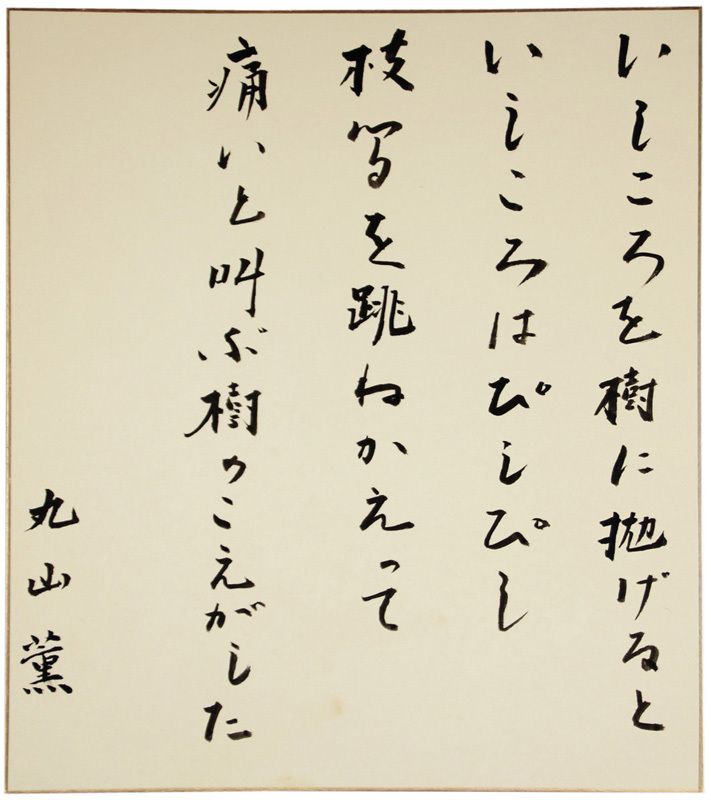 いしころを樹に抛げると
いしころはぴしぴし
枝間を跳ねかえって
痛いと叫ぶ樹のこえがした
丸山薫